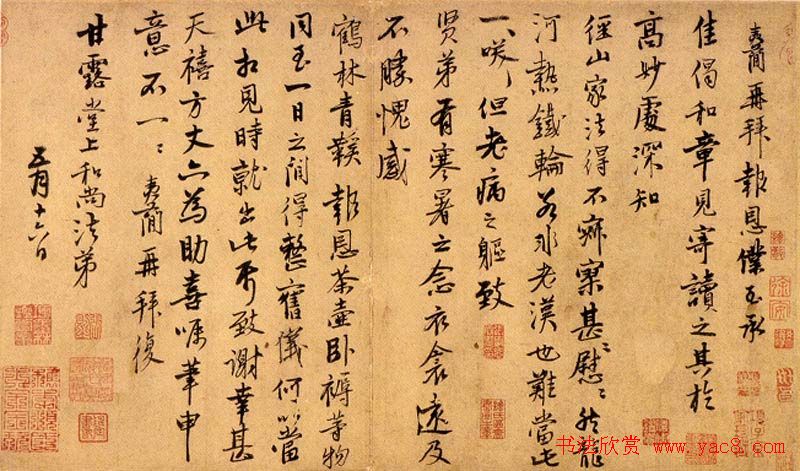 夷簡再拜報恩僕至承
佳偈和章見寄讀之其於
高妙處深知
徑山家法得不寂寞甚〻慰〻然能
河熱鐵輪若非老漢也難當此
一咲但老病之軀致
賢弟有寒暑之念衣衾遠及
不勝愧感
鶴林青鞵報恩茶壺卧褥等物
同至一日之間得整舊儀何以當
此相見時就出此可致謝幸甚
天禧方丈亦為助喜嘱筆申
意不一〻夷簡再拜復
甘露堂上和尚法弟
五月十六日
书法欣赏 www.yac8.com